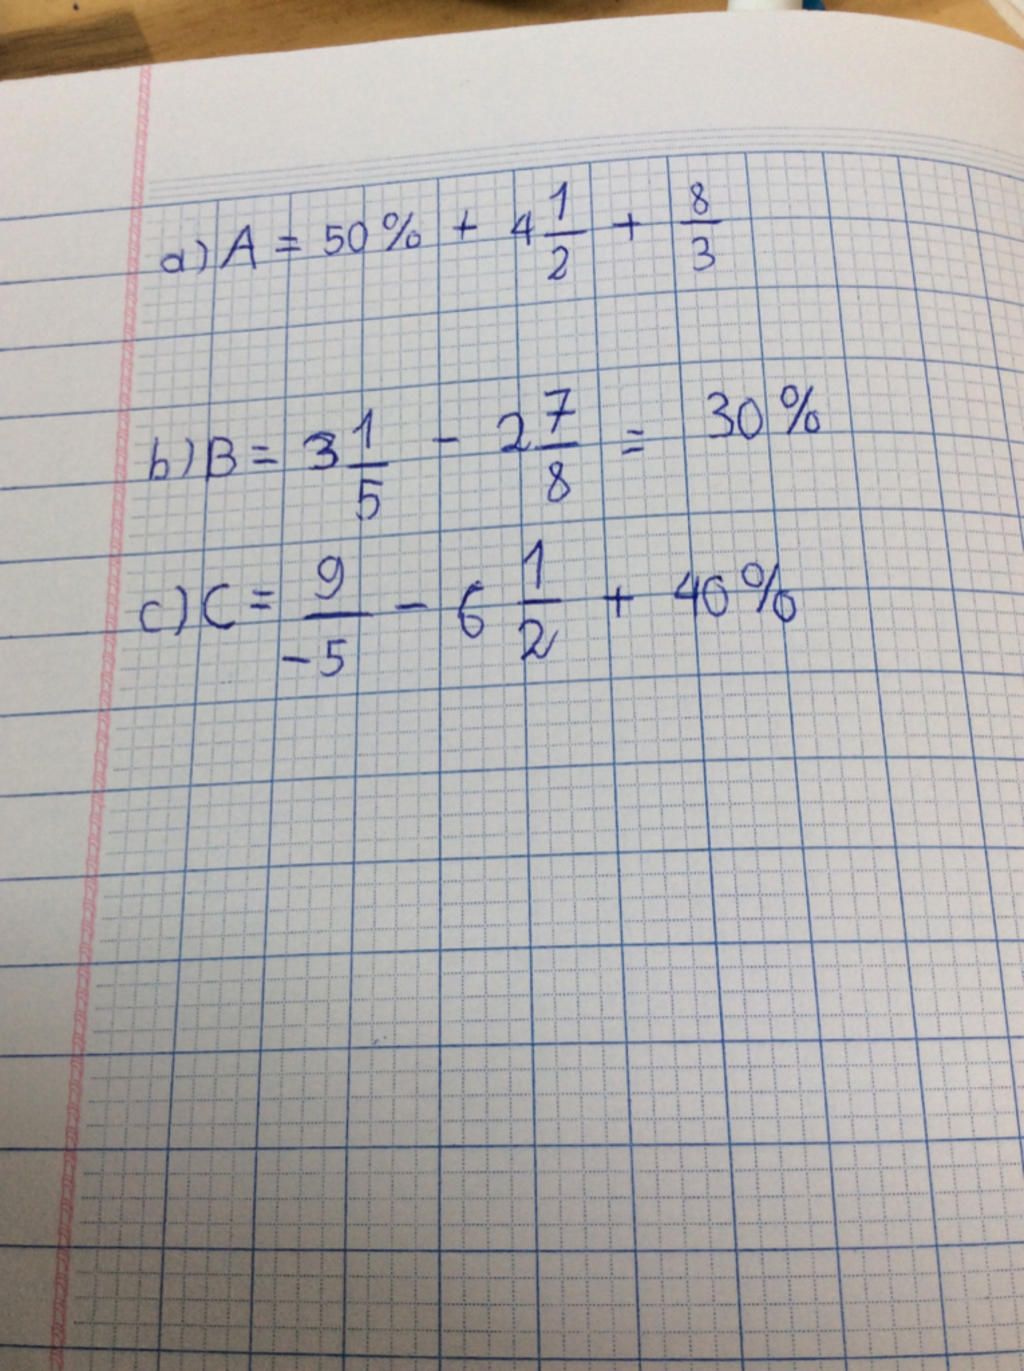 a) A = 50% + 4 1/2 + 8/3
b) B = 3 1/5 - 2 7/8 = 30%
c) C = 9/-5 - 6 1/2 + 40%